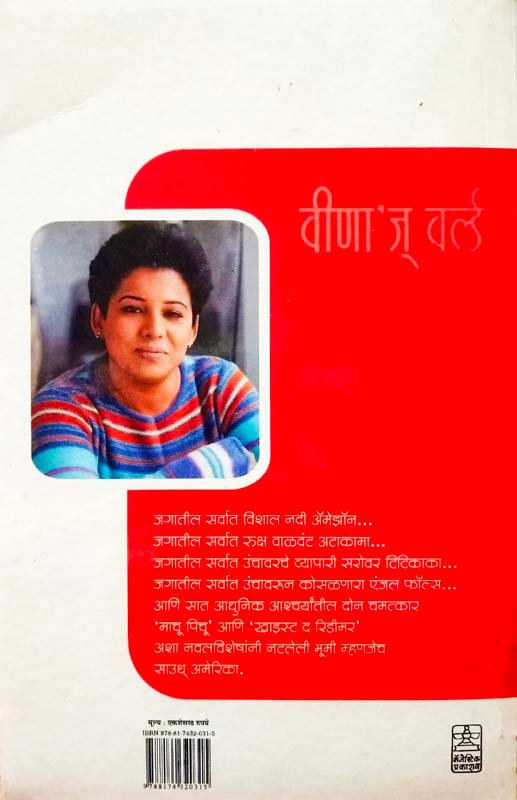 वीणा'ज् वर्ल्ड
जगातील सर्वात विशाल नदी ॲमेझॉन...
जगातील सर्वात रुक्ष वाळवंट अटाकामा...
जगातील सर्वात उंचावरचे व्यापारी सरोवर टिटिकाका...
जगातील सर्वात उंचावरून कोसळणारा एंजल फॉल्स...
आणि सात आधुनिक आश्चर्यांतील दोन चमत्कार
'माचू पिचू' आणि 'ख्राइस्ट द रिडीमर'
अशा नवलविशेषांनी नटलेली भूमी म्हणजेच
साउथ् अमेरिका.
मूल्य : एकशेसाठ रुपये
ISBN 978-81-7432-031-5
9788174320315
मॅजेस्टिक
प्रकाशन